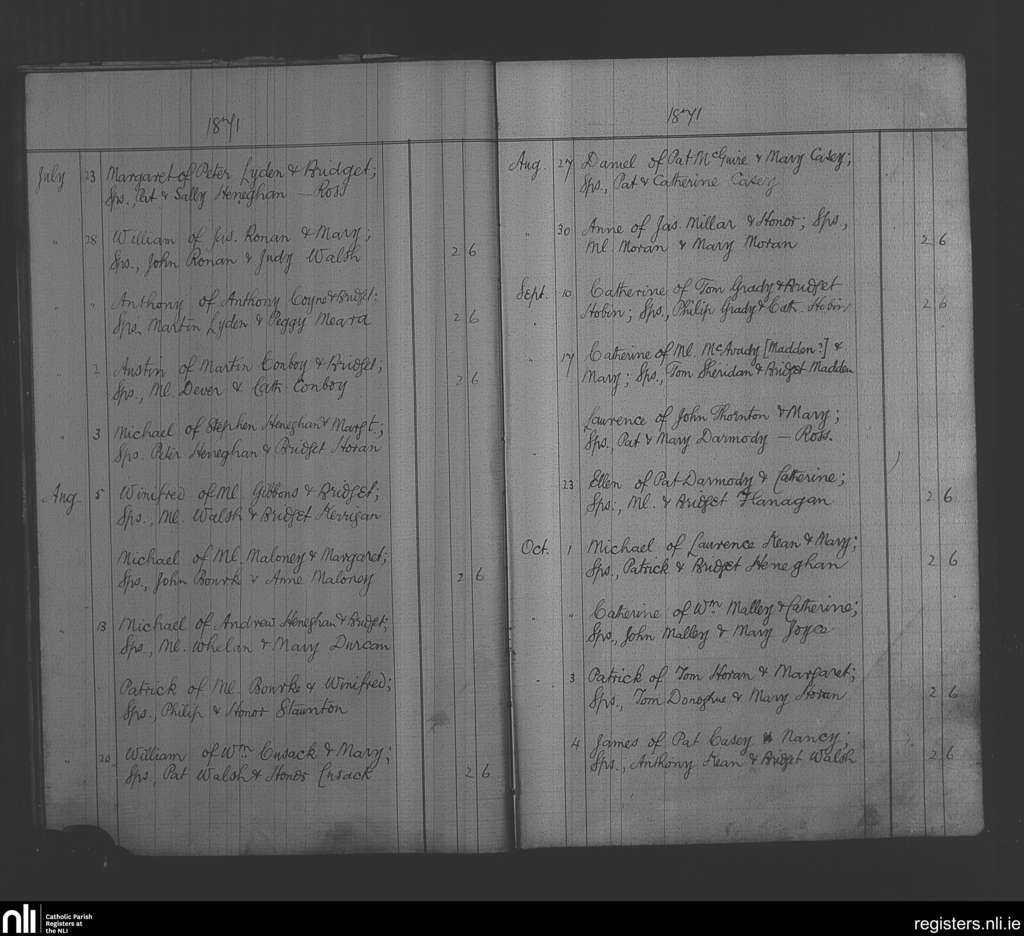 1871
July 23 Margaret of Peter Lyden & Bridget;
Sps. Pat & Sally Heneghan — Ross
" 28 William of Jas. Ronan & Mary;
Sps., John Ronan & Judy Walsh 2 6
" " Anthony of Anthony Coyne & Bridget;
Sps. Martin Lyden & Peggy Meara 2 6
Austin of Martin Conboy & Bridget;
Sps., Ml. Dever & Cath. Conboy 2 6
" 3 Michael of Stephen Heneghan & Margt.;
Sps. Peter Heneghan & Bridget Horan
Aug. 5 Winifred of Ml. Gibbons & Bridget;
Sps., Ml. Walsh & Bridget Kerrigan
Michael of Ml. Maloney & Margaret;
Sps., John Bourke & Anne Maloney 2 6
" 13 Michael of Andrew Heneghan & Bridget;
Sps., Ml. Whelan & Mary Durcan
Patrick of Ml. Bourke & Winifred;
Sps., Philip & Honor Staunton
" 20 William of Wm Cusack & Mary;
Sps. Pat Walsh & Honor Cusack 2 6
1871
Aug. 27 Daniel of Pat McGuire & Mary Casey;
Sps., Pat & Catherine Casey
" 30 Anne of Jas. Millar & Honor; Sps.,
Ml. Moran & Mary Moran 2 6
Sept. 10 Catherine of Tom Grady & Bridget
Hobin; Sps., Philip Grady & Cath. Hobin 2 6
" 17 Catherine of Ml. McAvady [Madden?] &
Mary; Sps., Tom Sheridan & Bridget Madden
Laurence of John Thornton & Mary;
Sps., Pat & Mary Darmody — Ross.
23 Ellen of Pat Darmody & Catherine;
Sps., Ml. & Bridget Flanagan 2 6
Oct. 1 Michael of Laurence Kean & Mary;
Sps., Patrick & Bridget Heneghan 2 6
" " Catherine of Wm Malley & Catherine;
Sps., John Malley & Mary Joyce
" 3 Patrick of Tom Horan & Margaret;
Sps., Tom Donoghue & Mary Horan 2 6
4 James of Pat Casey & Nancy;
Sps., Anthony Kean & Bridget Walsh 2 6
nli Catholic Parish
Registers at
the NLI
registers.nli.ie